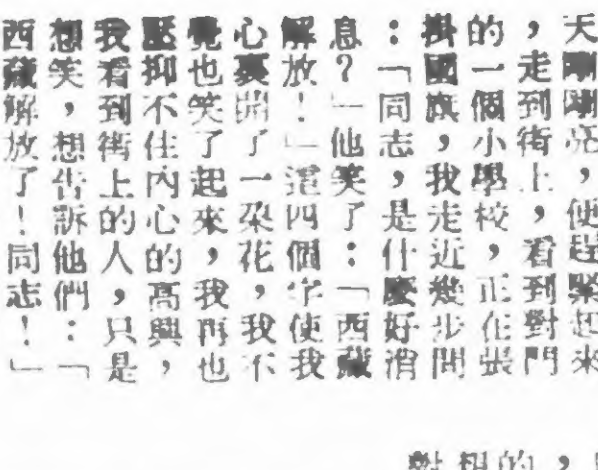 天剛剛亮，便趕緊起來
，走到街上，看到對門
的一個小學校，正在張
掛國旗，我走近幾步問
：「同志，是什麼好消
息？」他笑了：「西藏
解放！」這四個字使我
心裏開了一朶花，我不
覺也笑了起來，我再也
壓抑不住內心的高興，
我看到街上的人，只是
想笑，想告訴他們：「
西藏解放了！同志！」